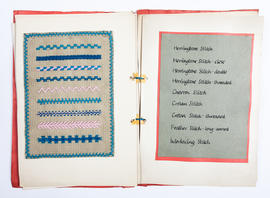 Herringbone Stitch
Herringbone Stitch - close
Herringbone Stitch - double
Herringbone Stitch - threaded
Chevron Stitch
Cretan Stitch
Cretan Stitch - threaded
Feather Stitch - long armed
Interlacing Stitch